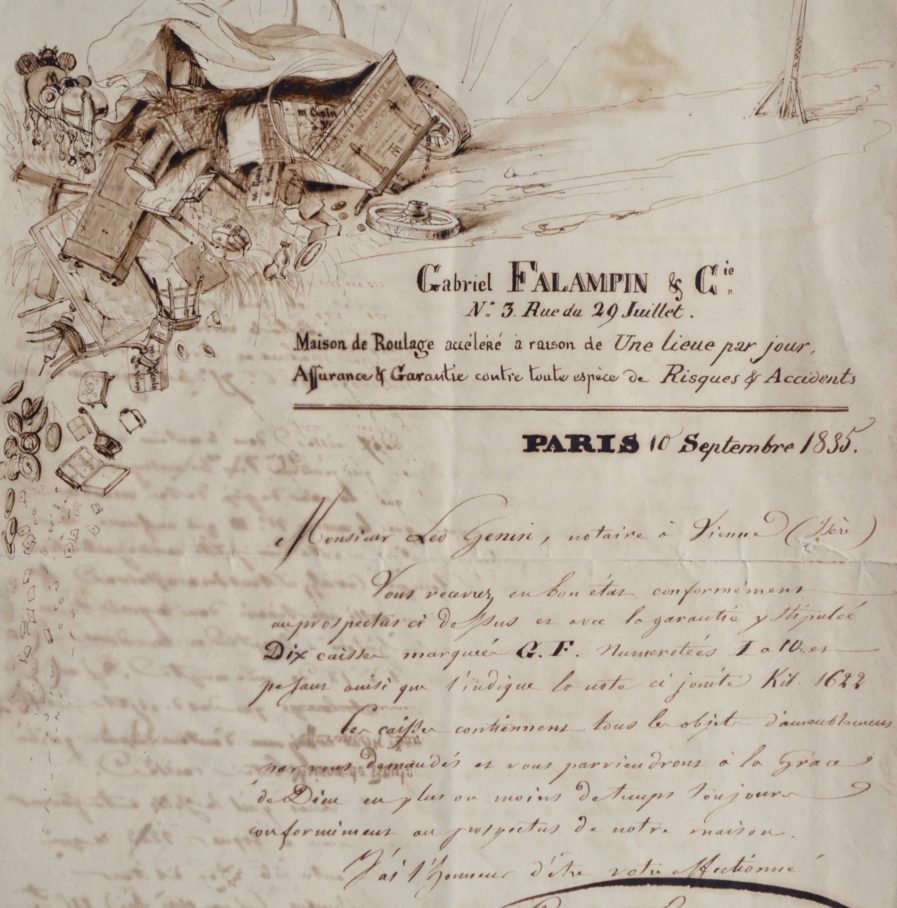 Gabriel FALAMPIN & Cie.
No. 3. Rue du 29 Juillet.
Maison de Roulage accéléré à raison de Une lieue par jour,
Assurance & Garantie contre toute espèce de Risques & Accidents
PARIS 10 Septembre 1835.
Monsieur Léo notaire à Vienne (Isère)
Vous recevrez en bon état conformément
au prospectus ci dessus et avec la garantie y stipulée
Dix caisses marquées G. F. Numerotées 1 a 10. et
pesant ainsi que l'indique la note ci jointe Kil. 1622
Les caisses contiennent tous les objets d'ameublement
par vous demandés et vous parviendront à la Grace
de Dieu en plus ou moins de temps toujours
conformément au prospectus de notre maison.
J'ai l'honneur d'être votre affectionné